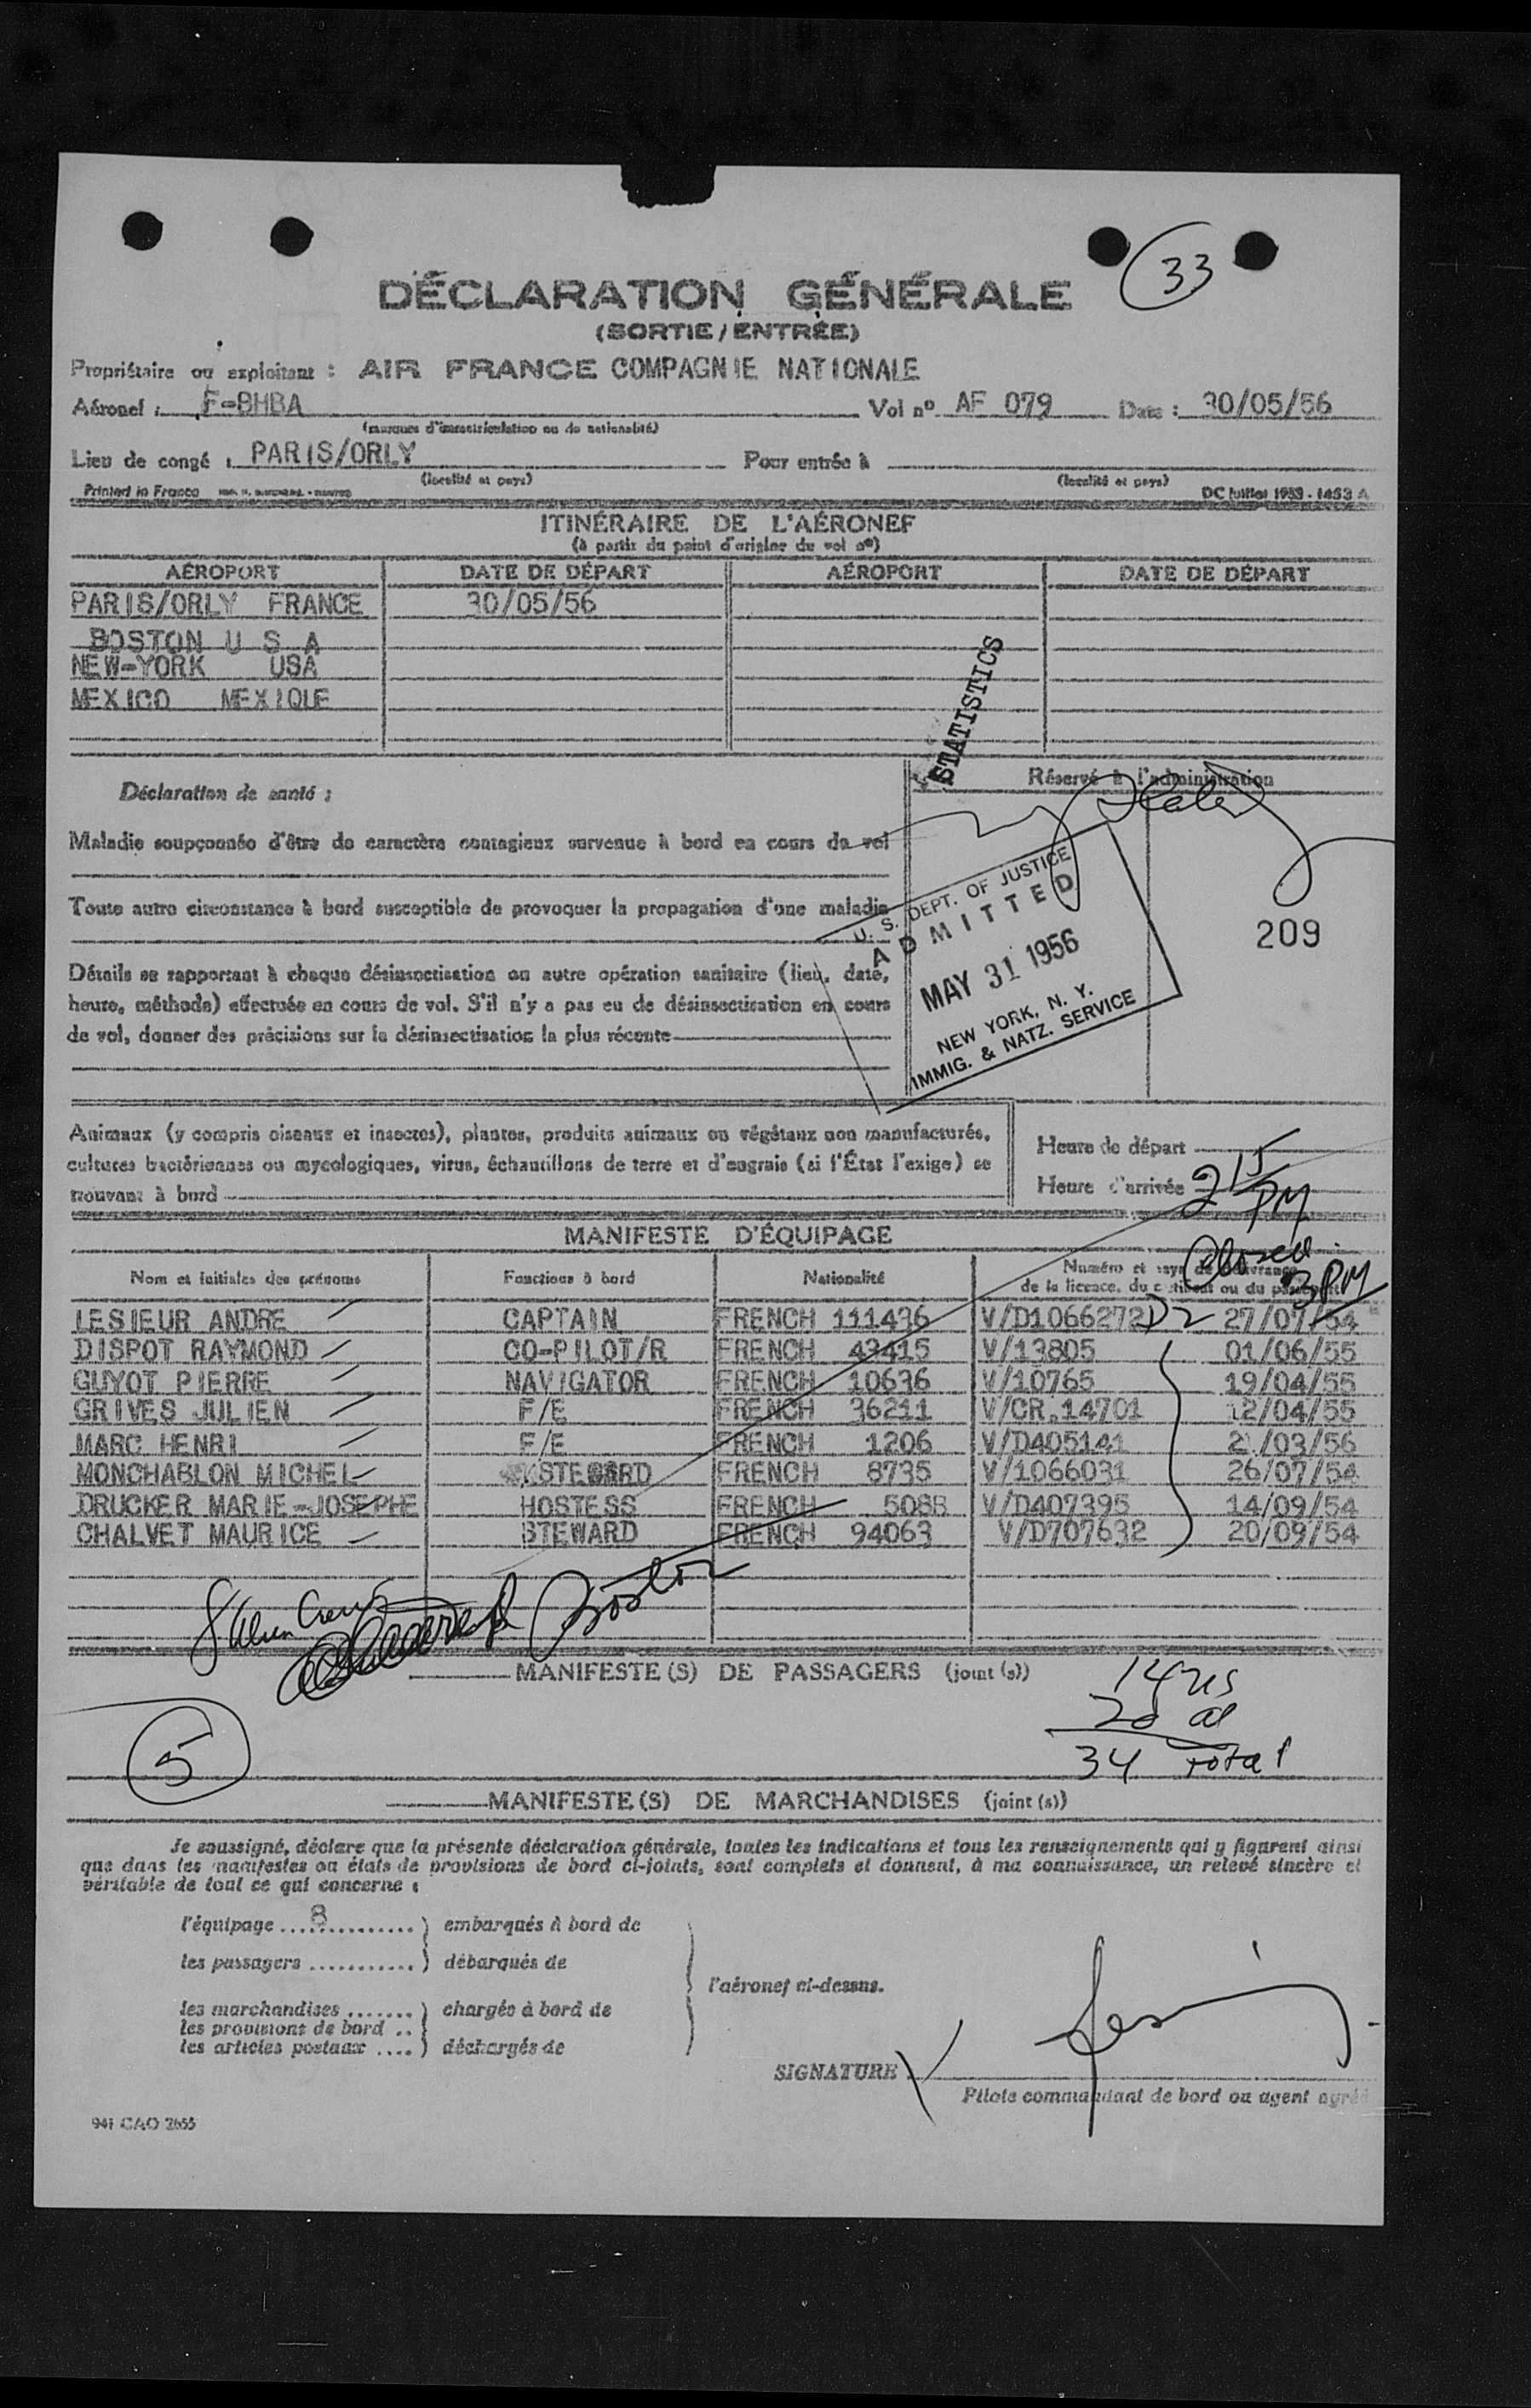 33
DÉCLARATION GÉNÉRALE
(SORTIE / ENTRÉE)
Propriétaire ou exploitant : AIR FRANCE COMPAGNIE NATIONALE
Aéronef : F-BHBA Vol nº AF 079 Date : 30/05/56
(marques d'immatriculation ou de nationalité)
Lieu de congé : PARIS/ORLY Pour entrée à
(localité et pays) (localité et pays)
Printed in France DC Juillet 1953 - 1453 A
ITINÉRAIRE DE L'AÉRONEF
(à partir du point d'origine du vol nº)
AÉROPORT DATE DE DÉPART AÉROPORT DATE DE DÉPART
PARIS/ORLY FRANCE 30/05/56
BOSTON U S A
NEW-YORK USA
MEXICO MEXIQUE
STATISTICS
Déclaration de santé :
Réservé à l'administration
Maladie soupçonnée d'être de caractère contagieux survenue à bord en cours de vol
Toute autre circonstance à bord susceptible de provoquer la propagation d'une maladie
Détails se rapportant à chaque désinsectisation ou autre opération sanitaire (lieu, date,
heure, méthode) effectuée en cours de vol. S'il n'y a pas eu de désinsectisation en cours
de vol, donner des précisions sur la désinsectisation la plus récente
U. S. DEPT. OF JUSTICE
ADMITTED
MAY 31 1956
NEW YORK, N. Y.
IMMIG. & NATZ. SERVICE
209
Animaux (y compris oiseaux et insectes), plantes, produits animaux ou végétaux non manufacturés,
cultures bactériennes ou mycologiques, virus, échantillons de terre et d'engrais (si l'État l'exige) se
trouvant à bord
Heure de départ
Heure d'arrivée 2 15 PM
Closed 3 PM
MANIFESTE D'ÉQUIPAGE
Nom et initiales des prénoms Fonctions à bord Nationalité Numéro et pays de délivrance
de la licence, du certificat ou du passeport
LESIEUR ANDRE CAPTAIN FRENCH 111436 V/D1066272 D2 27/07/54
DISPOT RAYMOND CO-PILOT/R FRENCH 43415 V/13805 01/06/55
GUYOT PIERRE NAVIGATOR FRENCH 10636 V/10765 19/04/55
GRIVES JULIEN F/E FRENCH 36211 V/CR.14701 12/04/55
MARC HENRI F/E FRENCH 1206 V/D405141 2/03/56
MONCHABLON MICHEL STEWARD FRENCH 8735 V/1066031 26/07/54
DRUCKER MARIE-JOSEPHE HOSTESS FRENCH 5088 V/D407395 14/09/54
CHALVET MAURICE STEWARD FRENCH 94063 V/D707632 20/09/54
8 Alien Crew
Boston
MANIFESTE(S) DE PASSAGERS (joint(s))
14 us
20 al
34 total
5
MANIFESTE(S) DE MARCHANDISES (joint(s))
Je soussigné, déclare que la présente déclaration générale, toutes les indications et tous les renseignements qui y figurent ainsi
que dans les manifestes ou états de provisions de bord ci-joints, sont complets et donnent, à ma connaissance, un relevé sincère et
véritable de tout ce qui concerne :
l'équipage 8 ) embarqués à bord de
les passagers ) débarqués de
l'aéronef ci-dessus.
les marchandises ) chargés à bord de
les provisions de bord
les articles postaux ) déchargés de
SIGNATURE
Pilote commandant de bord ou agent agréé
941 CAO 2655